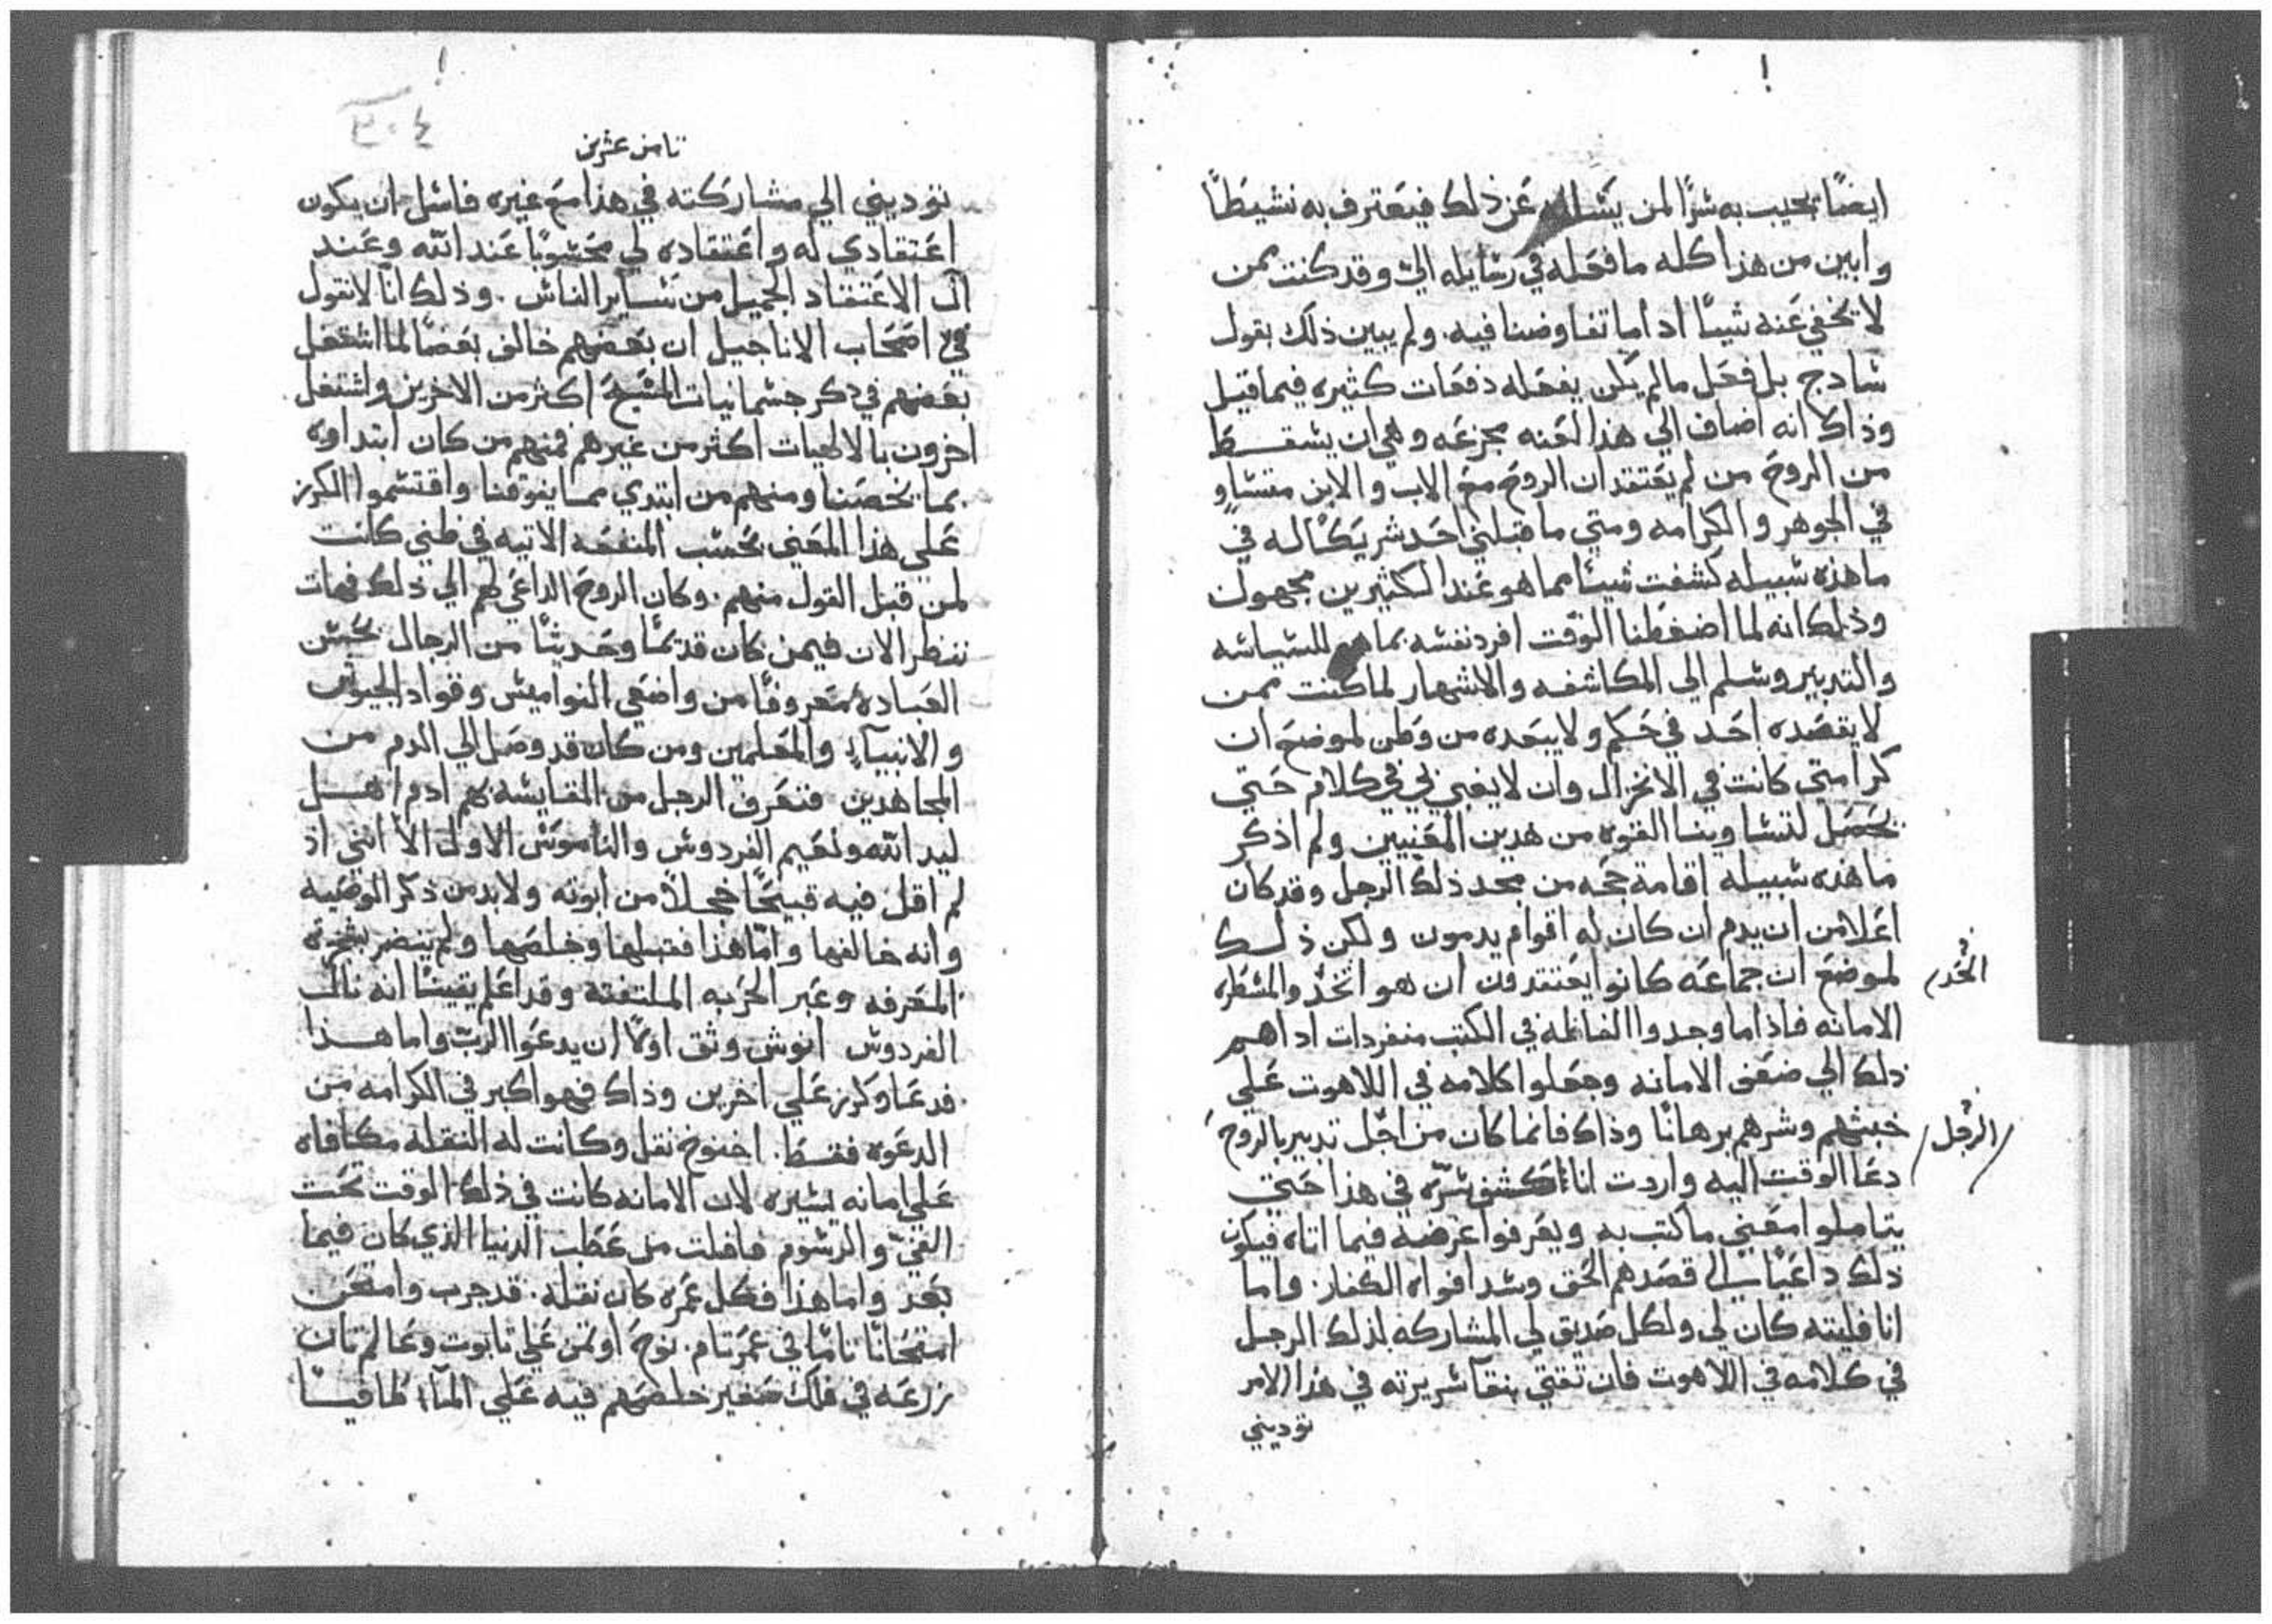 ايضًا يجيب به شرًا لمن يسله عن ذلك فيعترف به نشيطًا
وابين من هذا كله ما فعله في رسايله الي وقد كنت ممن
لا تخفي عنه شيئًا اذ اما تفاوضنا فيه. ولم يبين ذلك بقول
سادج بل فعل مالم يكن يفعله دفعات كثيره فيما قبل
وذاك انه اضاف الي هذا لعنه مجزعه وهي ان يسقط
من الروح من لم يعتقد ان الروح مع الاب والابن متساوٍ
في الجوهر والكرامه ومتي ما قبلني احد شريكًا له في
ما هذه سبيله كشفت شيئا مما هو عند الكثيرين مجهول
وذلك انه لما اضغطنا الوقت افرد نفسه بما هو للسياسه
والتدبير وسلم الي المكاشفه والاشهار لما كنت ممن
لا يقصده احد في حكم ولا يبعده من وطن لموضع ان
كرامتي كانت في الانخزال وان لا يغبي لي في كلام حتي
تحصل لتساوينا القوه من هدين المعنيين ولم اذكر
ما هذه سبيله اقامة حجه من مجد ذلك الرجل وقد كان
اعلا من ان يدم ان كان له اقوام يدمون ولكن ذلك
لموضع ان جماعه كانوا يعتقدون ان هو اتخد والمسطره
الحد
الامانه فاذا ما وجدوا الفاظه في الكتب منفردات اداهم
ذلك الي ضعف الامانه وجعلوا كلامه في اللاهوت علي
خبثهم وشرهم برهانًا وذاك فانما كان من اجل تدبير بالروح
الرجل
دعا الوقت اليه واردت انا اكشف سرّه في هذا حتي
يتاملوا معني ما كتب به ويعرفوا غرضه فيما اتاه فيكون
ذلك داعيًا الي قصدهم الحق وسد افواه الكفار. واما
انا فليته كان لي ولكل صديق لي المشاركه لذلك الرجل
في كلامه في اللاهوت فان تقتي بنقآ سريرته في هذا الامر
توديني

٣٠٤
تامن عشرين
توديني الي مشاركته في هذا مع غيره فاسل ان يكون
اعتقادي له واعتقاده لي محسوبًا عند الله وعند
آل الاعتقاد الجميل من ساير الناس. وذلك انآ لا نقول
في اصحاب الاناجيل ان بعضهم خالف بعضًا لما اشتغل
بعضهم في دكر جسمانيات المسيح اكثر من الاخرين واشتغل
اخرون بالالهيات اكثر من غيرهم فمنهم من كان ابتداوه
بما يخصنا ومنهم من ابتدي مما يفوقنا واقتسموا الكرز
علي هذا المعني بحسب المنفعه الاتيه في ظني كانت
لمن قبل القول منهم. وكان الروح الداعي لهم الي ذلك فهات
ننظر الان فيمن كان قديمًا وحديثًا من الرجال بحسن
العباده معروفًا من واضعي النواميس وقواد الجيوش
والانبيآء والمعلمين ومن كان قد وصل الي الدم من
المجاهدين فنعرف الرجل من المقايسه بهم ادم اهل
ليد الله ولنعيم الفردوس والناموس الاول الا انني اذ
لم اقل فيه قبيحًا خجلاً من ابوته ولا بد من ذكر الوصيه
وانه خالفها وامّا هذا فقبلها وخلصها ولم ينضر بشجرة
المعرفه وعبر الحربه الملتفته وقد اعلم يقينًا انه نال
الفردوس انوش وثق اولاً ان يدعوا الربّ واما هذا
فدعا وكرز علي اخرين وذاك فهو اكبر في الكرامه من
الدعوه فقط. اخنوخ نقل وكانت له النقله مكافاه
علي امانه يسيره لان الامانه كانت في ذلك الوقت تحت
الفيّ والرسوم فافلت من عطب الدنيا الذي كان فيما
بعد واما هذا فكل عمره كان نقله. قد جرب وامتحن
امتحانًا تامًا في عمر تام. نوح اوتمن علي تابوت وعالم تان
زرعه في فلك صغير خلصهم فيه علي المآء طافيًا